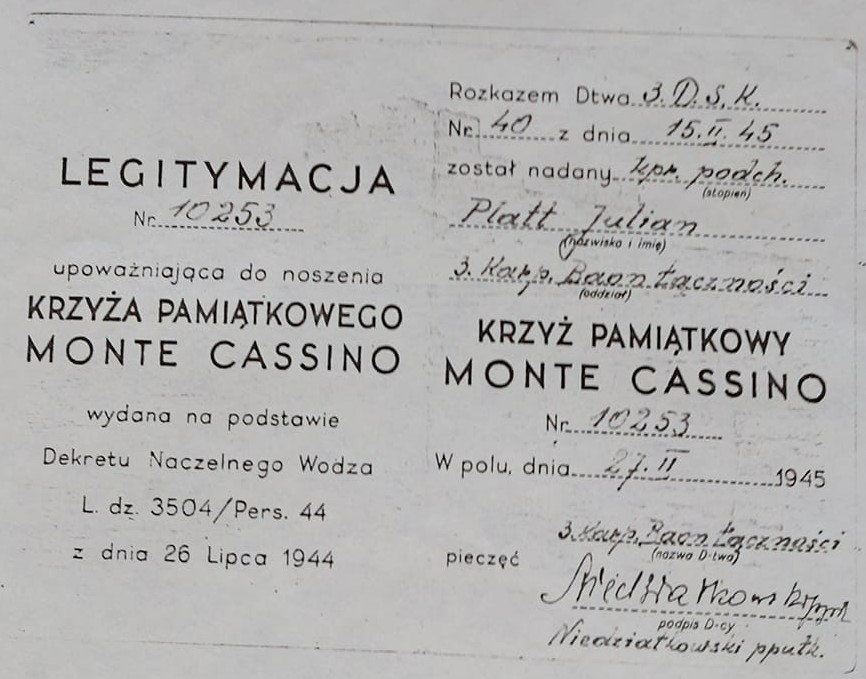 LEGITYMACJA
Nr. 10253
upoważniająca do noszenia
KRZYŻA PAMIĄTKOWEGO
MONTE CASSINO
wydana na podstawie
Dekretu Naczelnego Wodza
L. dz. 3504/Pers. 44
z dnia 26 Lipca 1944
Rozkazem Dtwa 3. D. S. K.
Nr. 40 z dnia 15. II. 45
został nadany kpr. podch.
(stopień)
Platt Julian
(nazwisko i imię)
3. Karp. Baon Łączności
(oddział)
KRZYŻ PAMIĄTKOWY
MONTE CASSINO
Nr. 10253
W polu, dnia 27. II 1945
3. Karp. Baon Łączności
(nazwa D-twa)
pieczęć
podpis D-cy
Niedziałkowski ppułk.